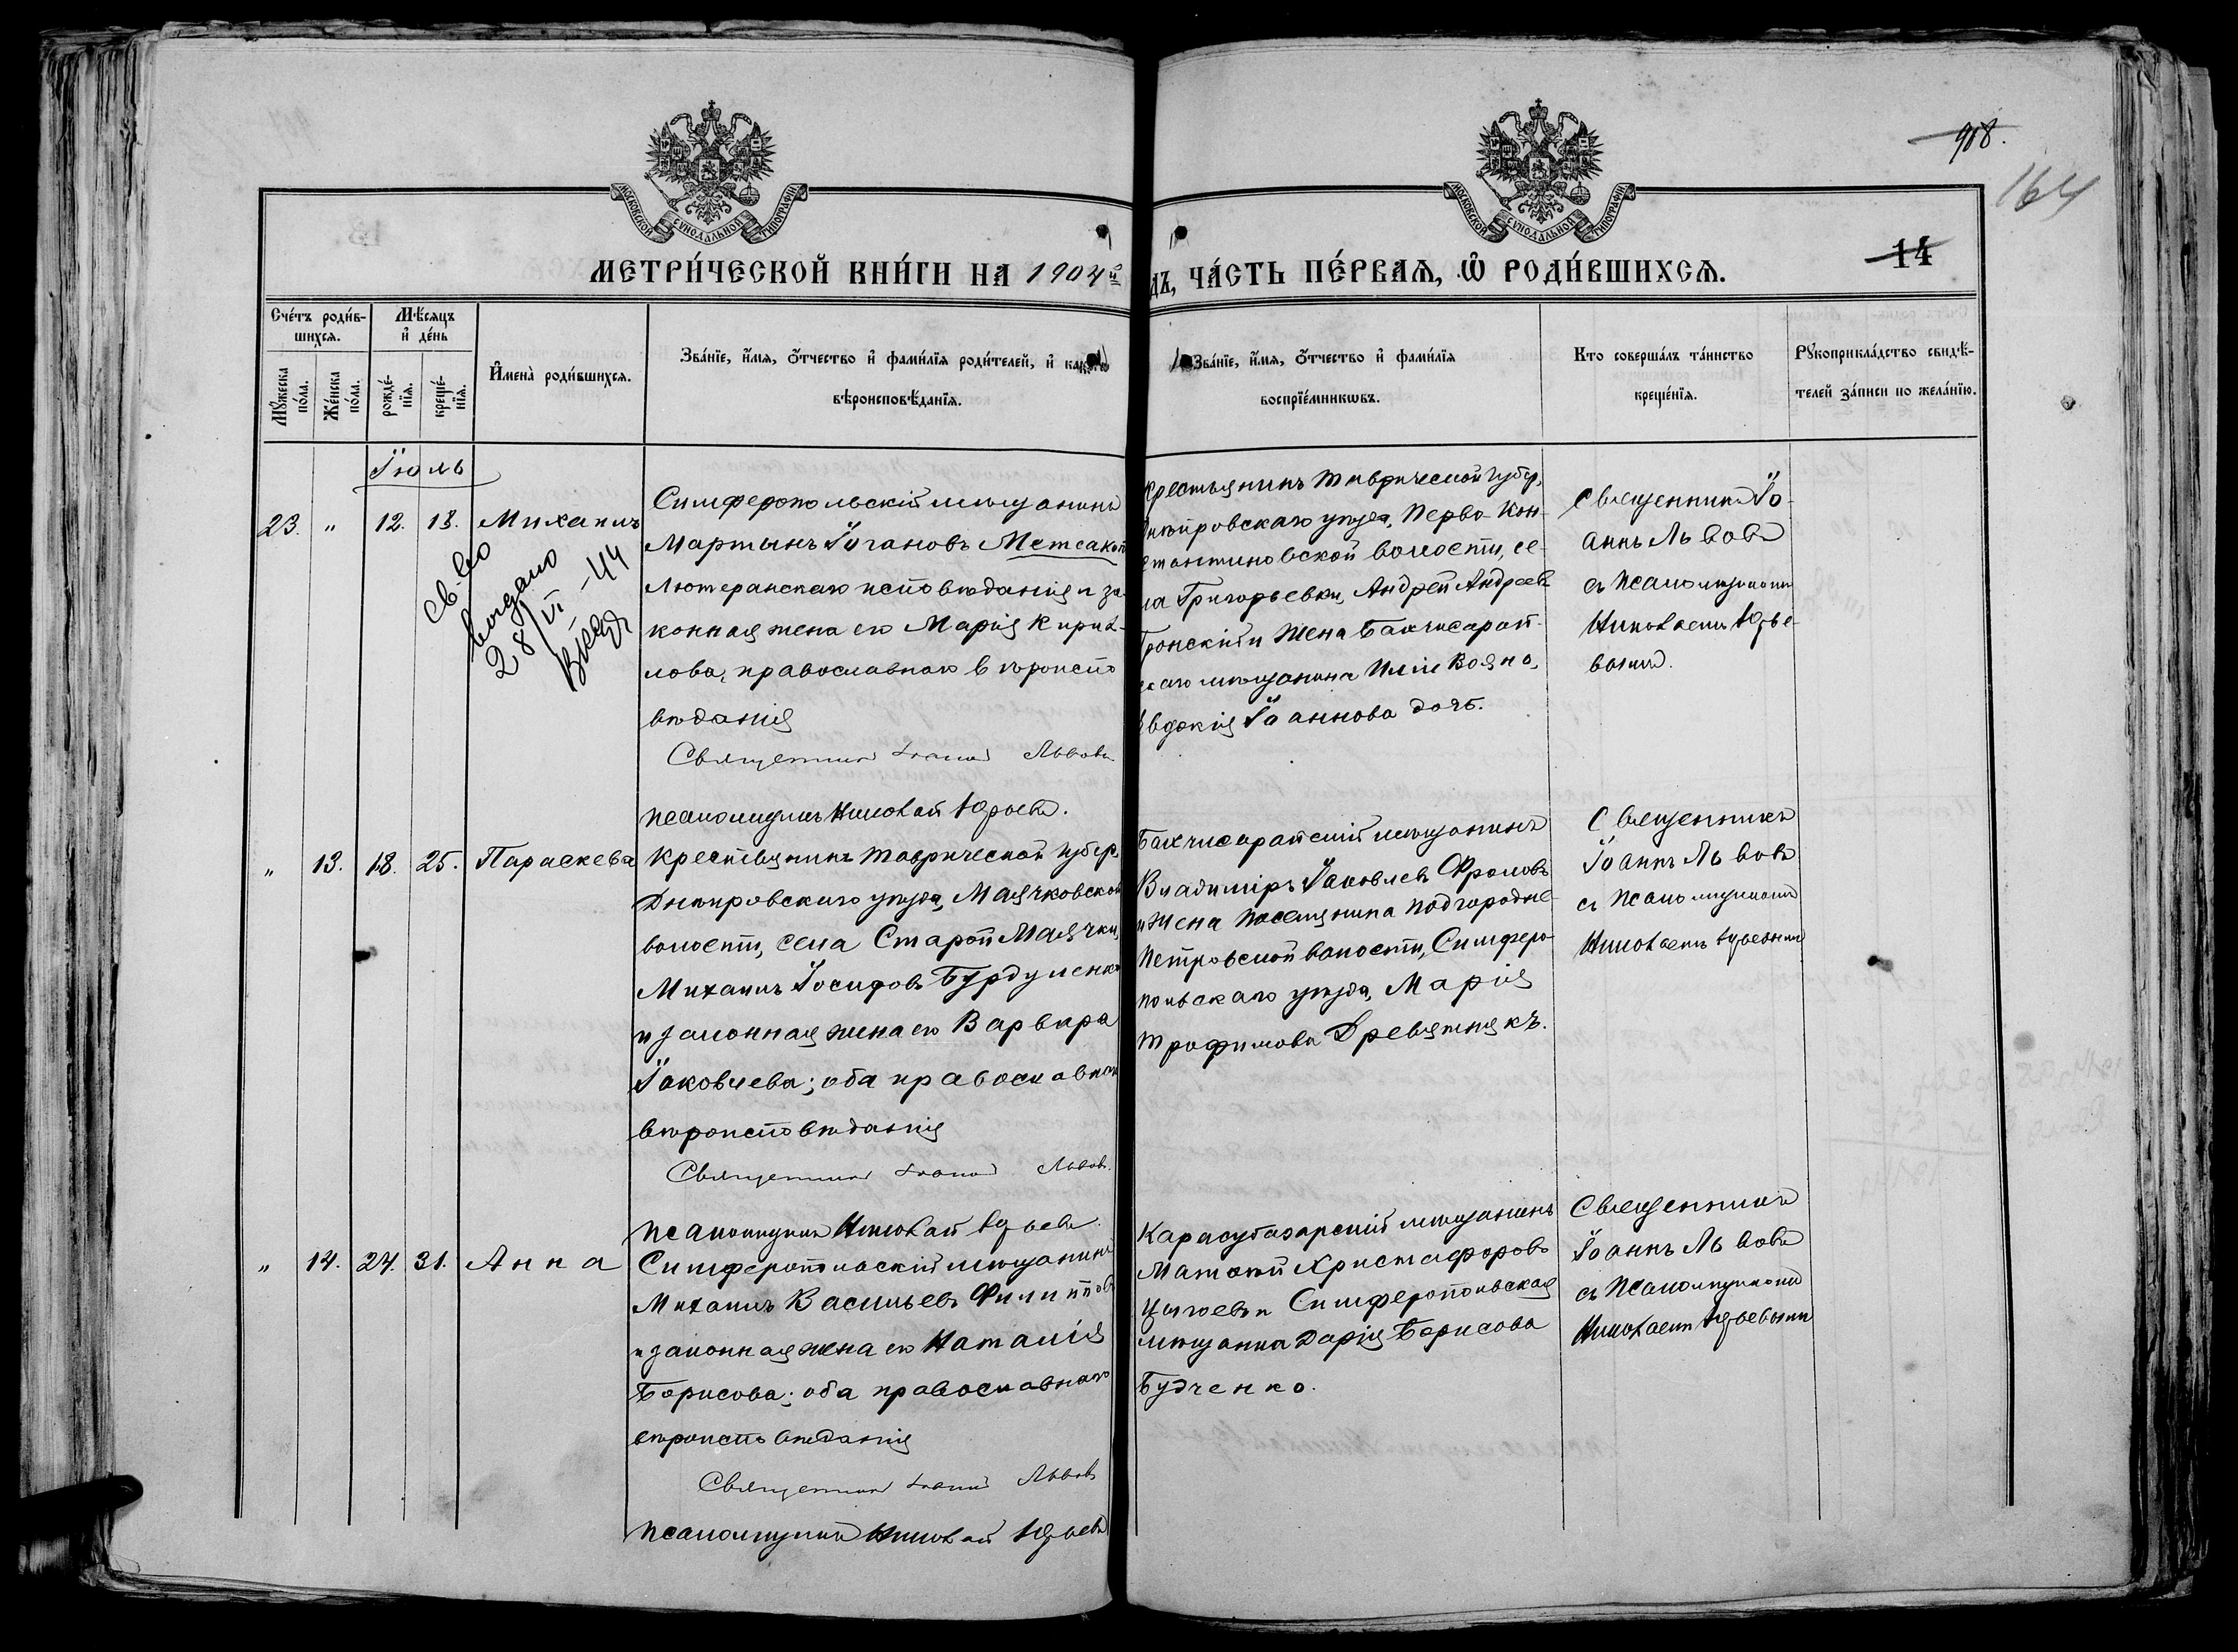 918.
164
14
МОСКОВСКОЙ СѴНОДАЛЬНОЙ ТИПОГРАФІИ
МОСКОВСКОЙ СѴНОДАЛЬНОЙ ТИПОГРАФІИ
МЕТРИ́ЧЕСКОЙ КНИ́ГИ НА 1904й
дъ, ЧА́СТЬ ПЕ́РВАЯ, Ѡ РОДИ́ВШИХСЯ.
Сче́тъ роди́в-
шихся.
Мꙋжеска по́ла.
Же́нска по́ла.
Мѣ́сяцъ и де́нь
рожде́-нїя.
креще́-нїя.
И҆мена̀ роди́вшихся.
Зва́нїе, и҆́мя, ѻ҆́тчество и҆ фами́лїя роди́телей, и҆ како́гѡ
вѣроисповѣ́данїя.
Зва́нїе, и҆́мя, ѻ҆́тчество и҆ фами́лїя
воспрїе́мникѡвъ.
Кто соверша́лъ та́инство
креще́нїя.
Рꙋкоприкла́дство свидѣ́-
телей за́писи по жела́нїю.
Іюль
23. " 12. 18. Михаилъ
Св-во
выдано
28/VI-44
Симферопольскій мѣщанинъ
Мартынъ Югановъ Метсакоп
Лютеранскаго исповѣданія и за-
конная жена его Марія Кирил-
лова, православнаго вѣроиспо
вѣданія
Священникъ Іоаннъ Львовъ
псаломщикъ Николай Юрьевъ.
Крестьянинъ Таврической губер.
Днѣпровскаго уѣзда, Перво-Кон-
стантиновской волости, се-
ла Григорьевки, Андрей Андреевъ
Тронскій и жена Бахчисарай-
скаго мѣщанина Иліи Вояно,
Евдокія Іоаннова дочь.
Священникъ Іо-
аннъ Львовъ
съ псаломщикомъ
Николаемъ Юрье-
вымъ.
" 13. 18. 25. Параскева
Крестьянинъ Таврической губер.
Днѣпровскаго уѣзда, Маячковской
волости, села Старой Маячки,
Михаилъ Іосифовъ Бурдуленко
и законная жена его Варвара
Іаковлева; оба православнаго
вѣроисповѣданія
Священникъ Іоаннъ Львовъ.
псаломщикъ Николай Юрьевъ.
Бахчисарайскій мѣщанинъ
Владиміръ Іаковлевъ Фроловъ
и жена поселянина Подгородне-
Петровской волости, Симферо-
польскаго уѣзда, Марія
Трофимова Древетнякъ.
Священникъ
Іоаннъ Львовъ
съ псаломщикомъ
Николаемъ Юрьевымъ
" 14. 24. 31. Анна
Симферопольскій мѣщанинъ
Михаилъ Васильевъ Филипповъ
и законная жена его Наталія
Борисова; оба православнаго
вѣроисповѣданія
Священникъ Іоаннъ Львовъ
псаломщикъ Николай Юрьевъ
Карасубазарскій мѣщанинъ
Матвѣй Христофоровъ
и Симферопольская
мѣщанка Дарія Борисова
Будченко.
Священникъ
Іоаннъ Львовъ
съ псаломщикомъ
Николаемъ Юрьевымъ